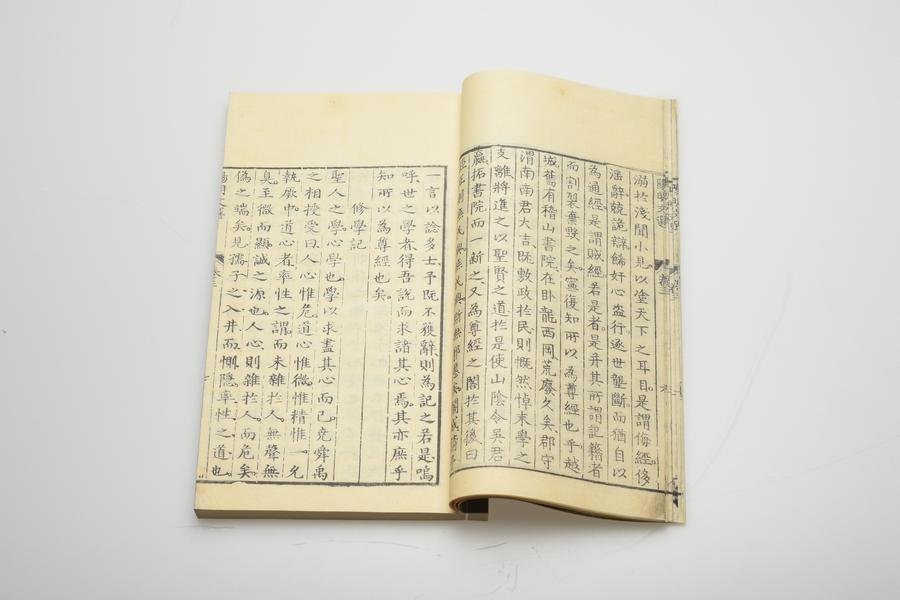 溺於淺聞小見以塗天下之耳目是謂侮經侈
淫辭競詭辯飾奸心盗行逐世壟斷而猶自以
為通經是謂賊經若是者是并其所謂記籍者
而割裂棄毀之矣寧復知所以為尊經也乎越
城舊有稽山書院在卧龍西岡荒廢久矣郡守
渭南南君大吉既敷政於民則慨然悼末學之
支離將進之以聖賢之道於是使山陰令吳君
瀛拓書院而一新之又為尊經之閣於其後曰
一言以諗多士予既不獲辭則為記之若是嗚
呼世之學者得吾說而求諸其心焉其亦庶乎
知所以為尊經也矣
修學記
聖人之學心學也學以求盡其心而已堯舜禹
之相授受曰人心惟危道心惟微惟精惟一允
執厥中道心者率性之謂而未雜於人無聲無
臭至微而顯誠之源也人心則雜於人而危矣
偽之端矣見孺子之入井而惻隱率性之道也